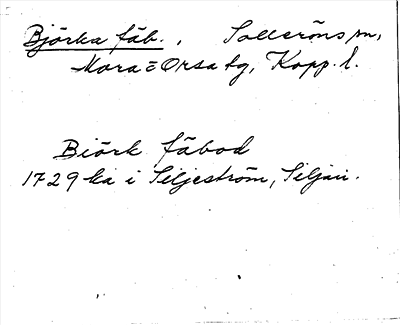 Björka fäb., Solleröns sn,
Mora=Orsa tg, Kopp. l.
Biörk fäbod
1729 ka i Siljeström, Siljan.